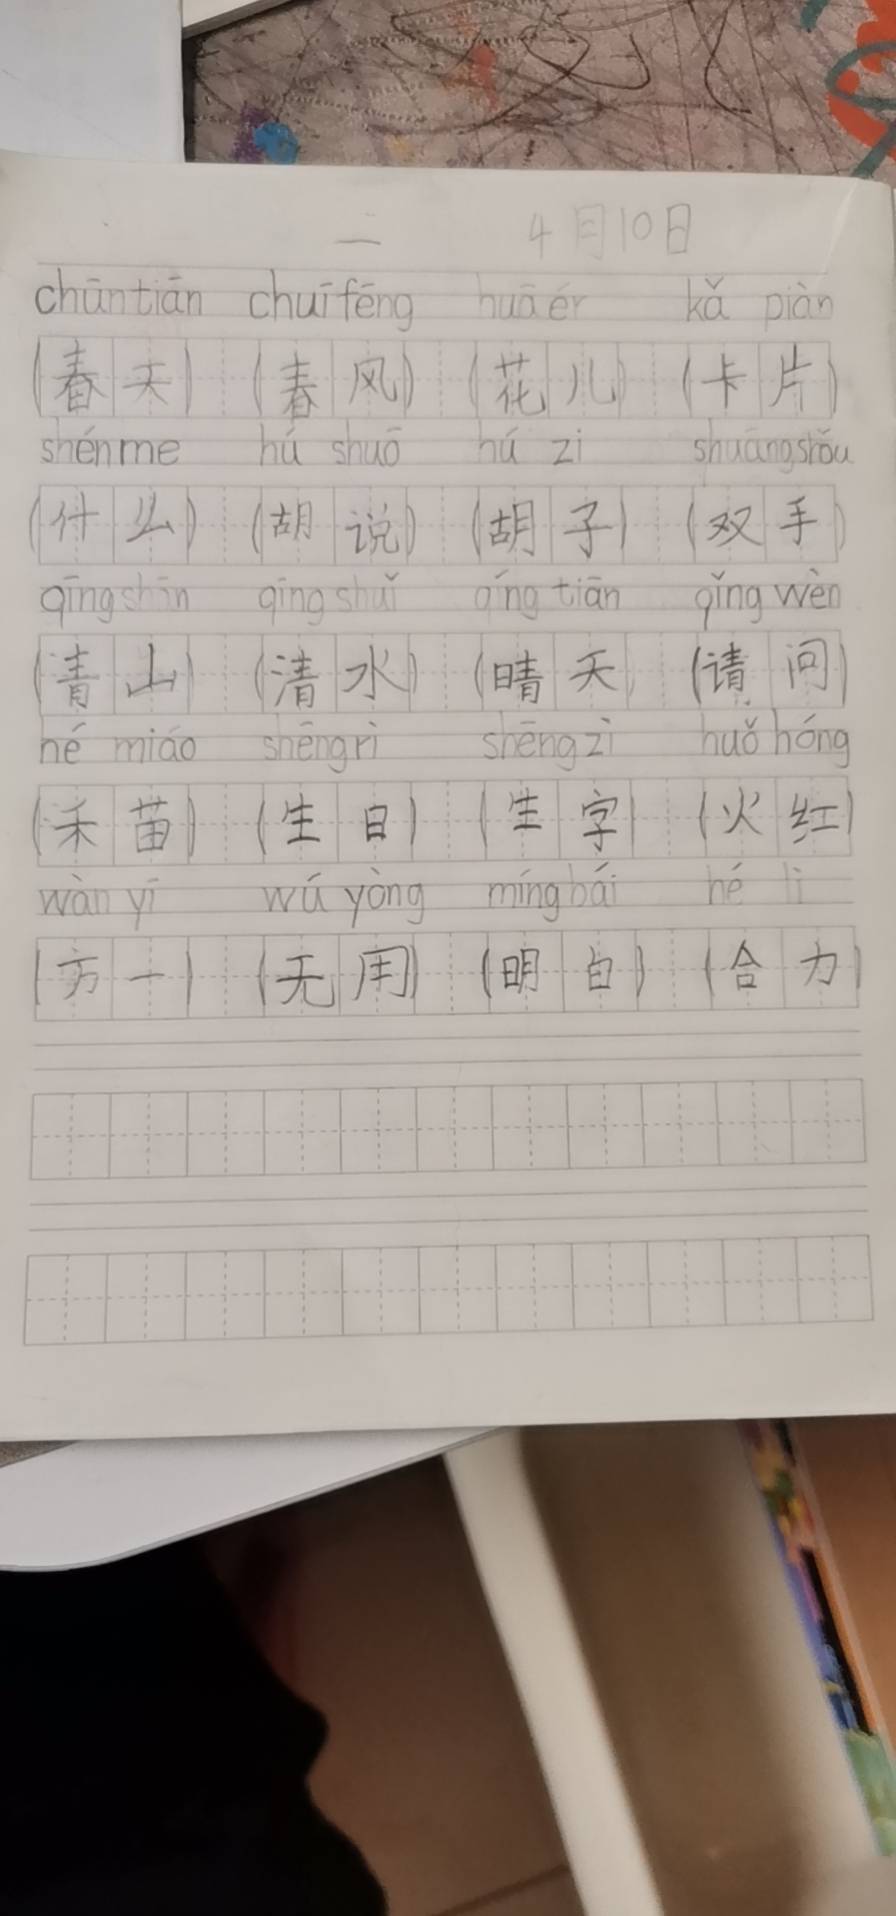 二 4月10日
chūntiān chuīfēng huāér kǎ piàn
(春天) (春风) (花儿) (卡片)
shénme hú shuō hú zi shuāngshǒu
(什么) (胡说) (胡子) (双手)
qīngshān qīngshuǐ qíng tiān qǐng wèn
(青山) (清水) (晴天) (请问)
hé miáo shēngrì shēngzì huǒ hóng
(禾苗) (生日) (生字) (火红)
wàn yī wú yòng míngbái hé lì
(万一) (无用) (明白) (合力)